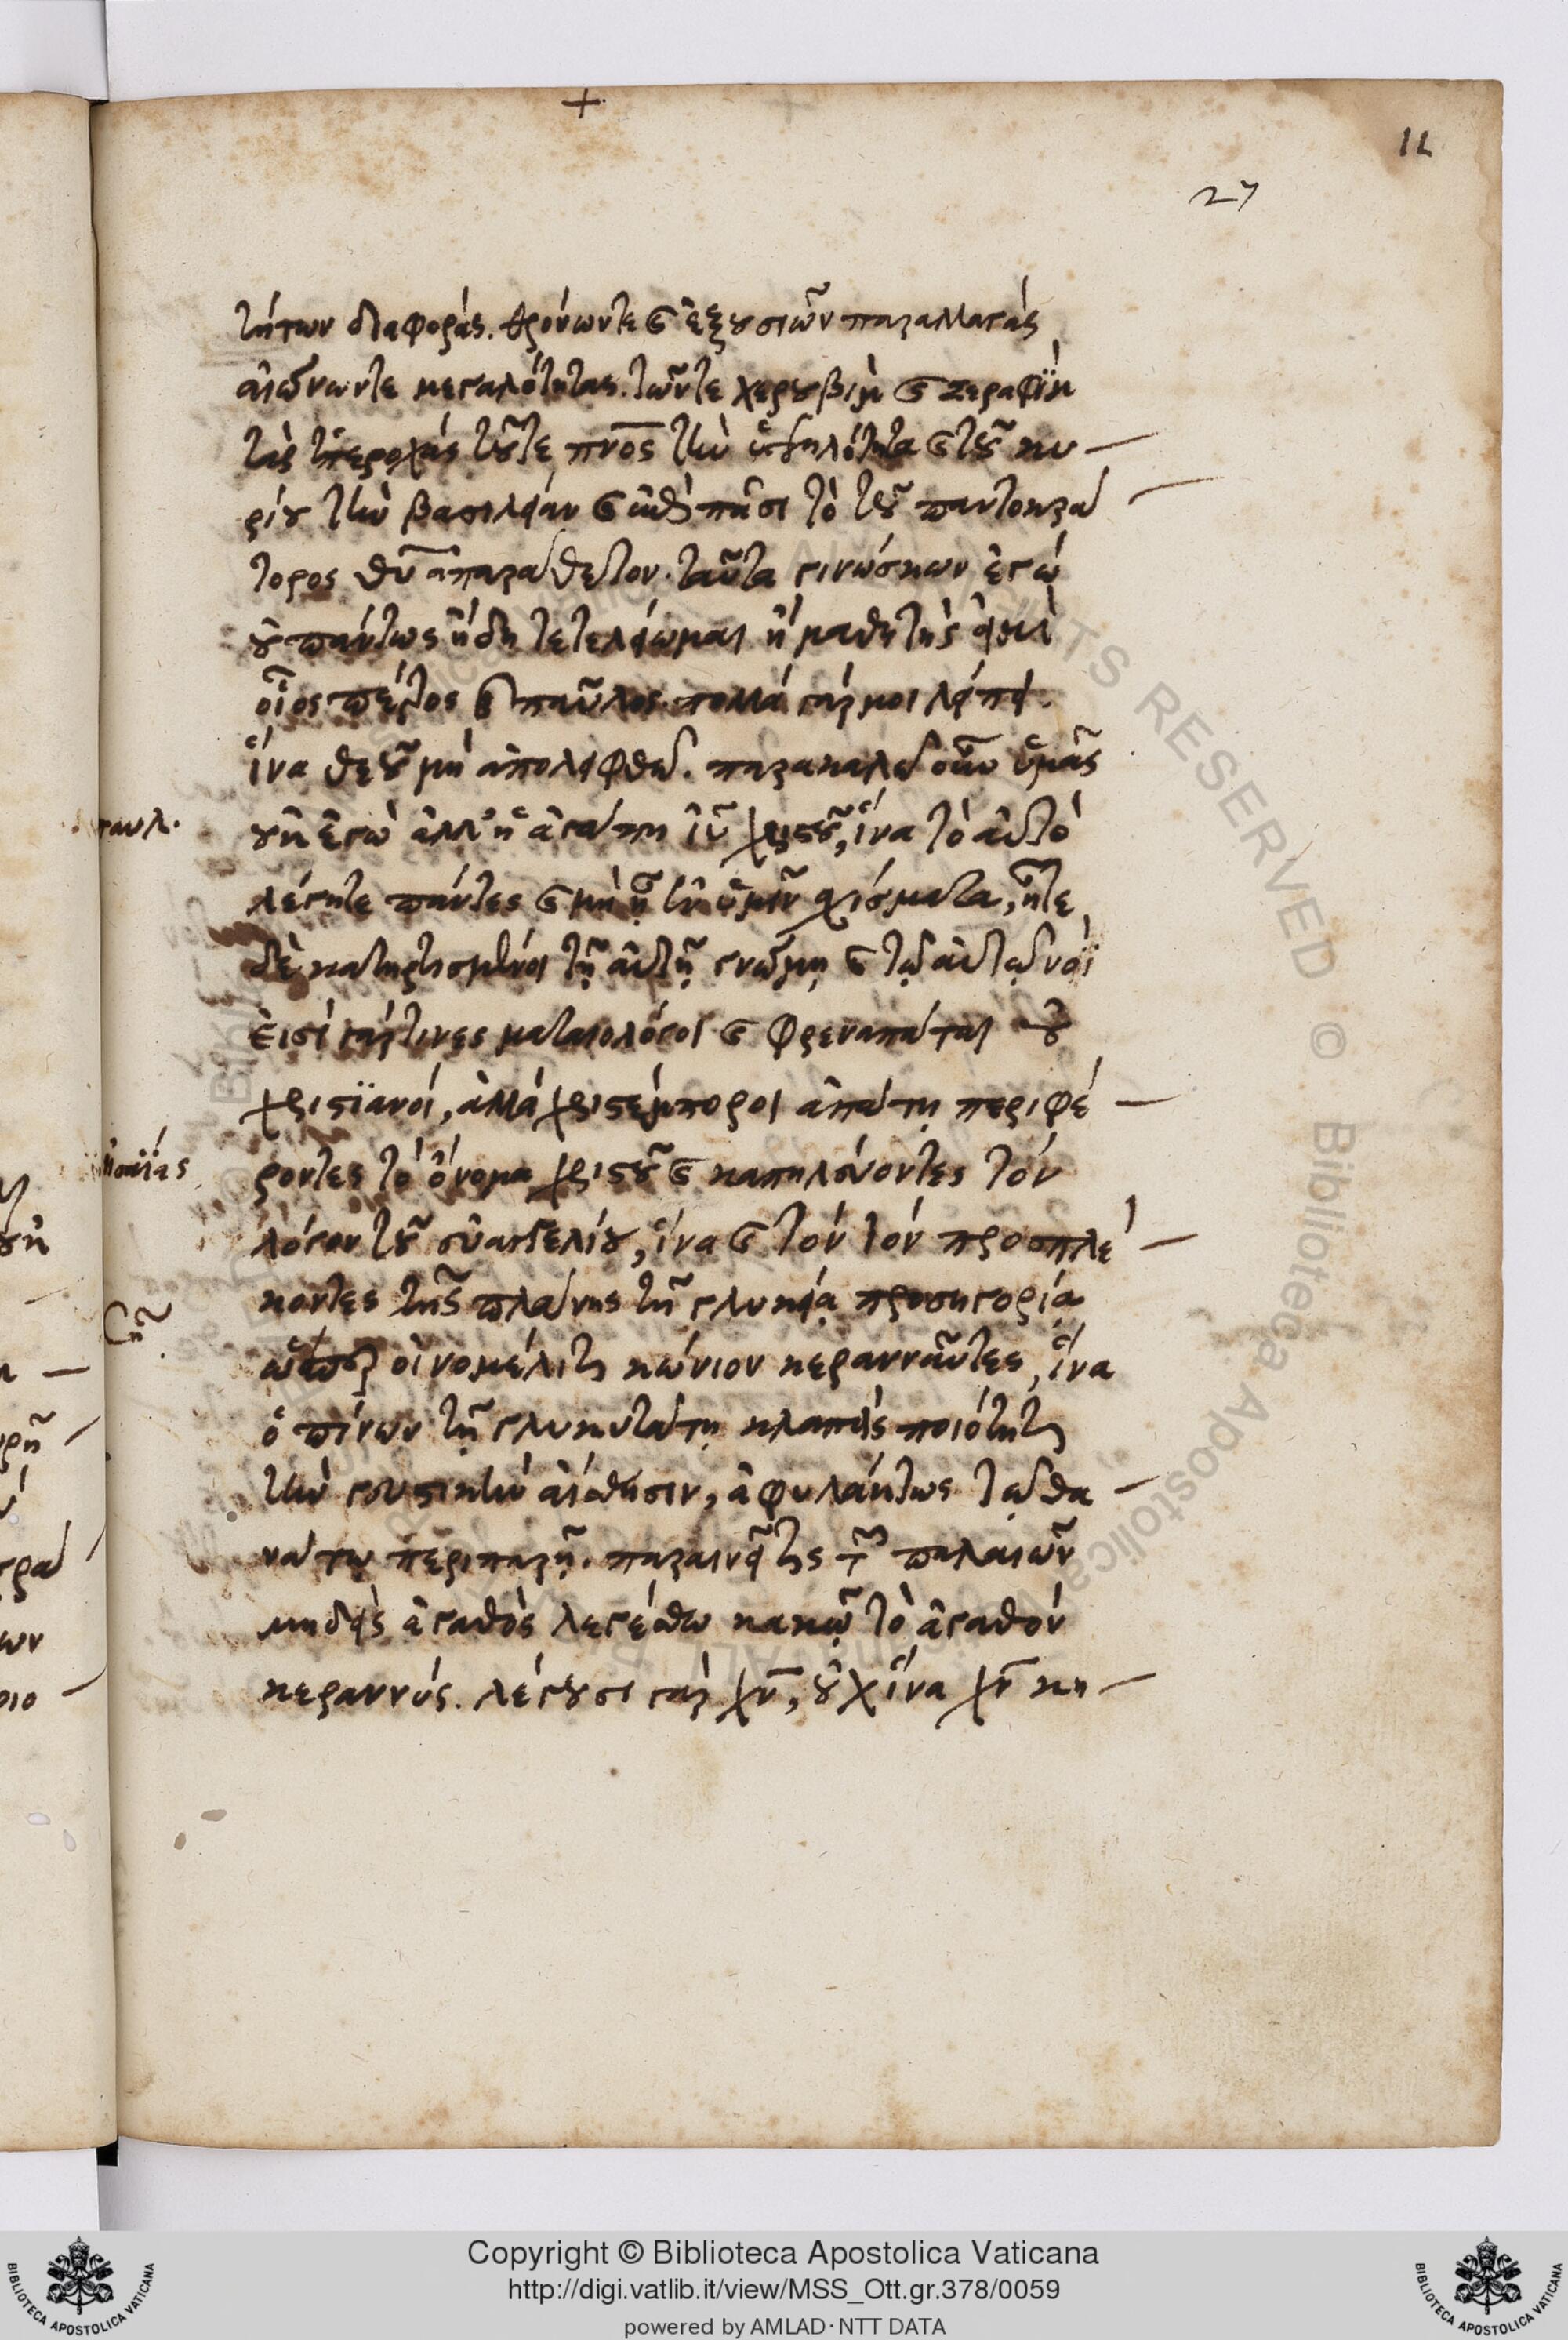 +
11
27
τήτων διαφοράς. θρόνωντε καὶ ἐξουσιῶν παραλλαγάς
αἰώνωντε μεγαλότητας. τῶντε χερουβὶμ καὶ σεραφὶμ
τὰς ὑπεροχάς τοῦτε πνος τὴν ὑψηλότητα καὶ τοῦ κυ–
ρίου τὴν βασιλείαν καὶ ἐπὶ πᾶσι τὸ τοῦ παντοκρά
τορος θυ ἀπαράθετον. ταῦτα γινώσκων ἐγώ
οὐ πάντως ἤδη τετελείωμαι ἢ μαθητής εἰμὶ
οἷος πέτρος καὶ παῦλος. πολλά γάρ μοι λείπει.
ἵνα θεοῦ μὴ ἀπολειφθῶ. παρακαλῶ οὖν ὑμᾶς
παυλ.
οὐκ ἐγὼ ἀλλ' ἡ ἀγάπη ιυ χριστοῦ, ἵνα τὸ αὐτὸ
λέγητε πάντες καὶ μὴ ᾖ ἐν ὑμῖν σχίσματα, ἦτε
δὲ κατηρτισμένοι τῇ αὐτῇ γνώμῃ καὶ τῷ αὐτῷ νοΐ
εἰσί γάρ τινες ματαιολόγοι καὶ φρεναπάται οὐ
χριστϊανοί, ἀλλά χριστέμποροι ἀπάτῃ περιφέ–
ροντες τὸ ὄνομα χριστοῦ καὶ καπηλεύοντες τόν
λόγον τοῦ εὐαγγελίου, ἵνα καὶ τὸν ἰὸν προσπλέ–
κοντες τῆς πλάνης τῇ γλυκείᾳ προσηγορίᾳ
ὥσπερ οἰνομέλιτι κώνιον κεραννῦντες, ἵνα
ὁ πίνων τῇ γλυκυτάτῃ κλαπεὶς ποιότητι
τὴν γευστικὴν αἴσθησιν, ἀφυλάκτως τῷ θα–
νάτῳ περιπαρῇ. παραινεῖ τις τῶν παλαιῶν
μηδεὶς ἀγαθὸς λεγέσθω κακῷ τὸ ἀγαθόν
κεραννύς. λέγουσι γάρ χν, οὐχ ἵνα χν κη–
Copyright © Biblioteca Apostolica Vaticana
http://digi.vatlib.it/view/MSS_Ott.gr.378/0059
powered by AMLAD·NTT DATA